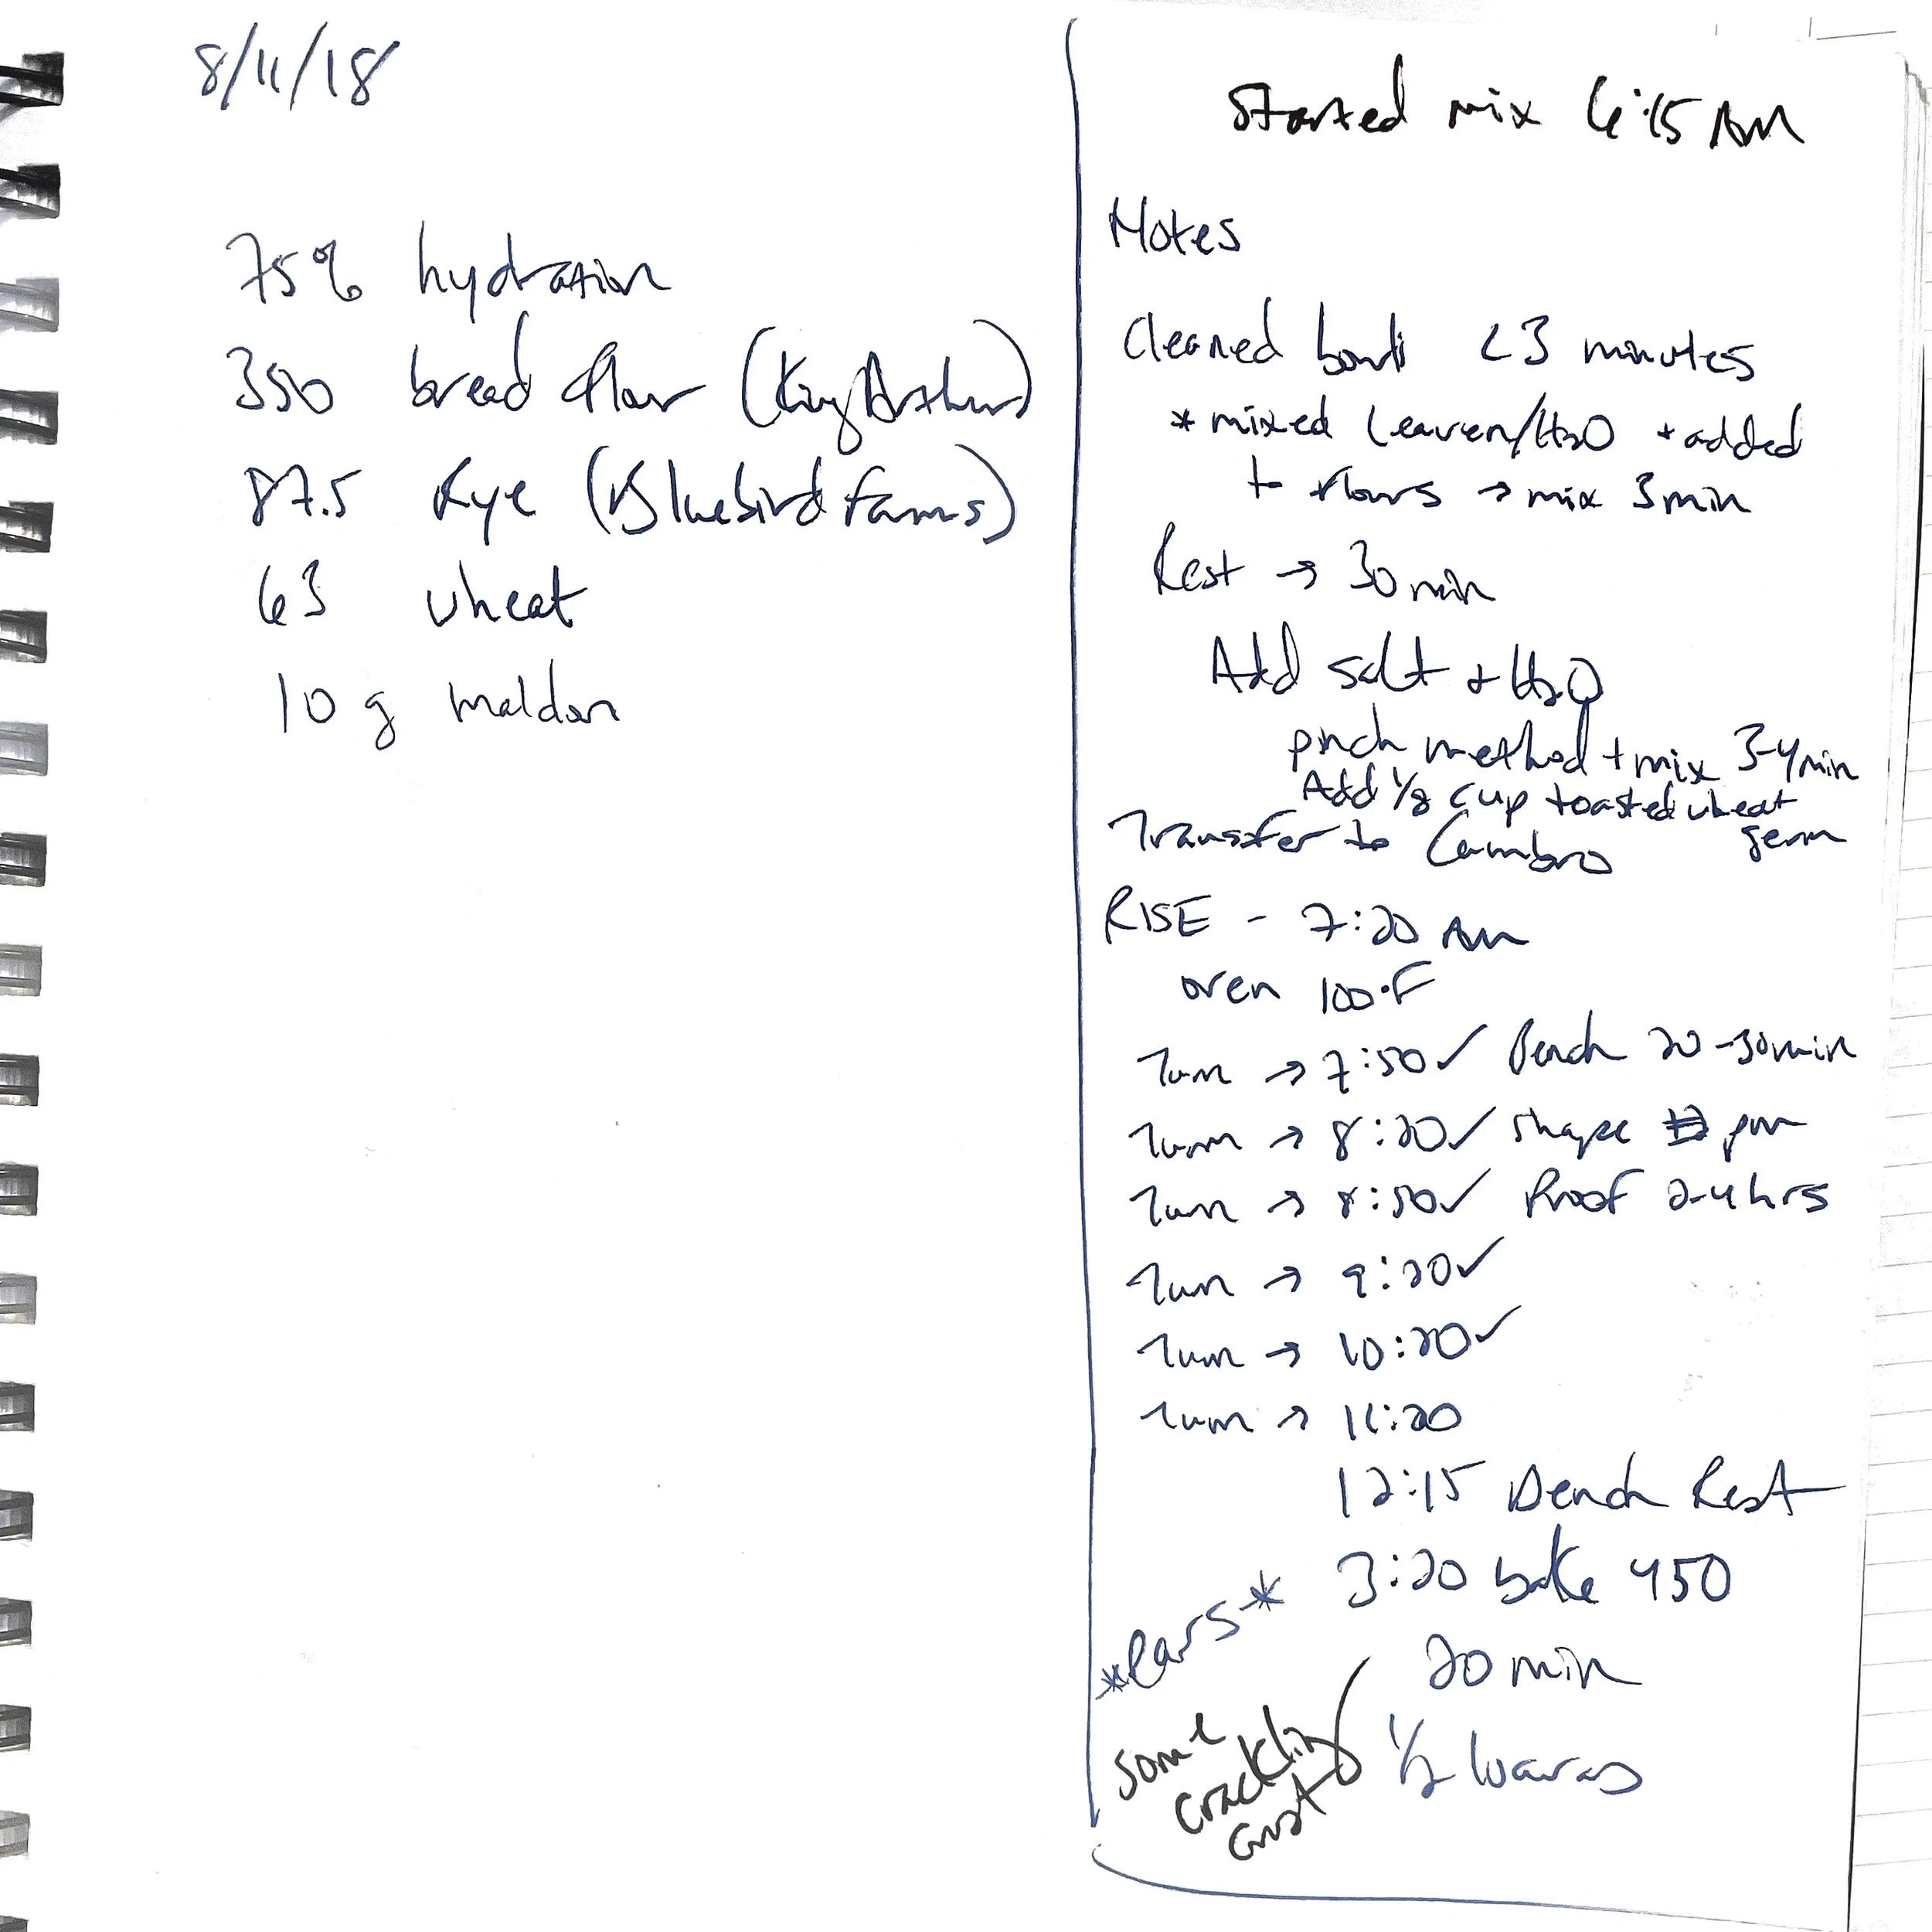 8/11/18
75% hydration
350 bread flour (King Arthur)
87.5 Rye (Bluebird Farms)
63 wheat
10 g maldon
Started mix 6:15 AM
Notes
Cleaned bowl <3 minutes
* mixed leaven/H2O + added
to flours → mix 3 min
Rest → 30 min
Add salt + H2O
pinch method + mix 3-4 min
Add 1/8 cup toasted wheat
germ
Transfer to Cambro
RISE - 7:20 AM
oven 100°F
Turn → 7:50 ✓ Bench 20-30 min
Turn → 8:20 ✓ Shape
Turn → 8:50 ✓ Proof 2-4 hrs
Turn → 9:20 ✓
Turn → 10:20 ✓
Turn → 11:20
12:15 Bench Rest
3:20 bake 450
*ears*
20 min
some
crackling
crust
1/2 loaves